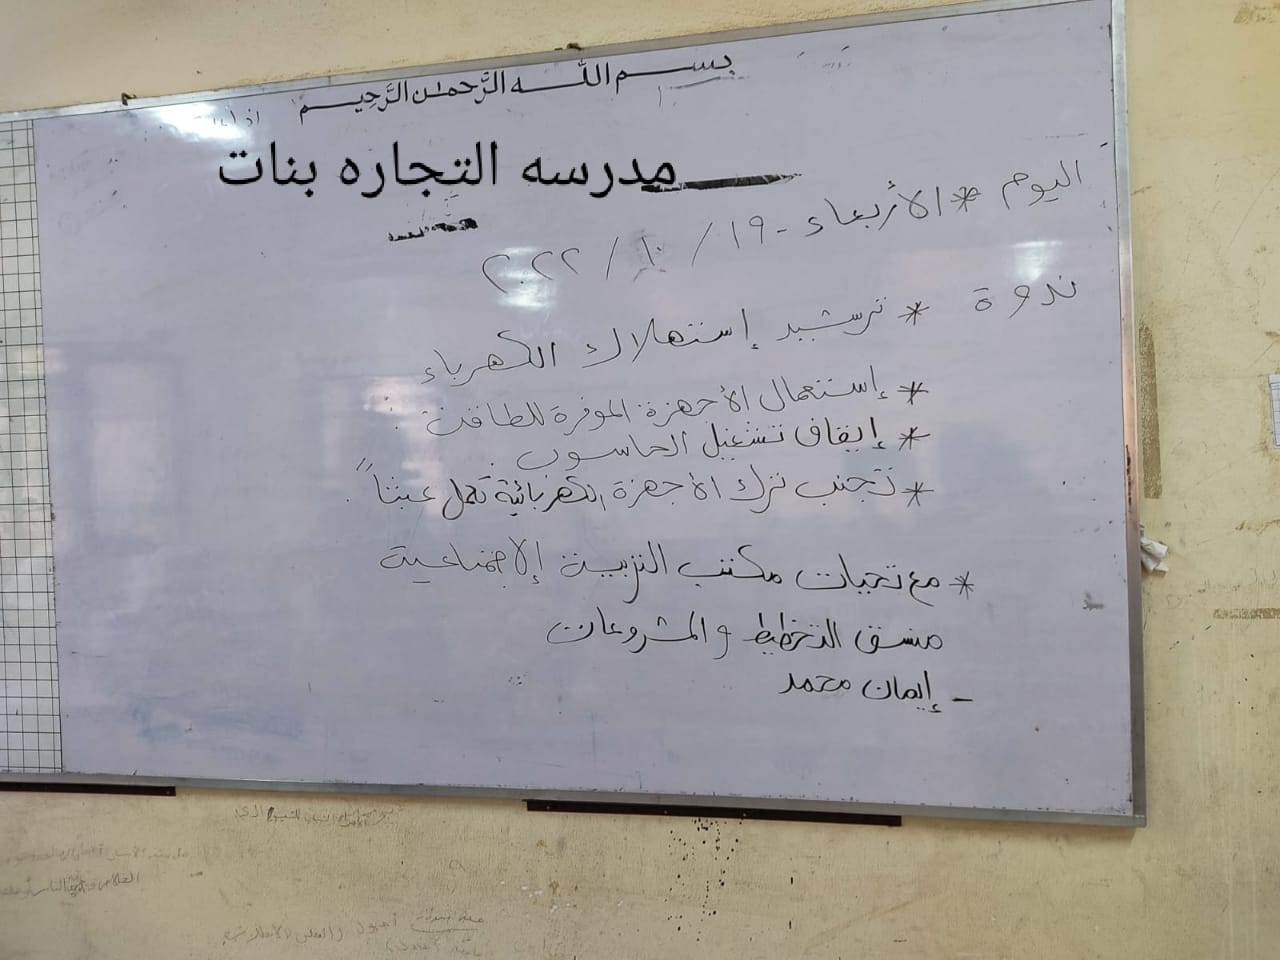 بسم الله الرَّحمٰن الرَّحِيم
مدرسه التجاره بنات
اليوم * الأربعاء - ١٩ / ١٠ / ٢٠٢٢
ندوة * ترشيد إستهلاك الكهرباء
* إستعمال الأجهزة الموفرة للطاقة.
* إيقاف تشغيل الحاسوب.
* تجنب ترك الأجهزة الكهربائية تعمل عبثاً.
* مع تحيات مكتب التربية الإجتماعية
منسق التخطيط والمشروعات
- إيمان محمد